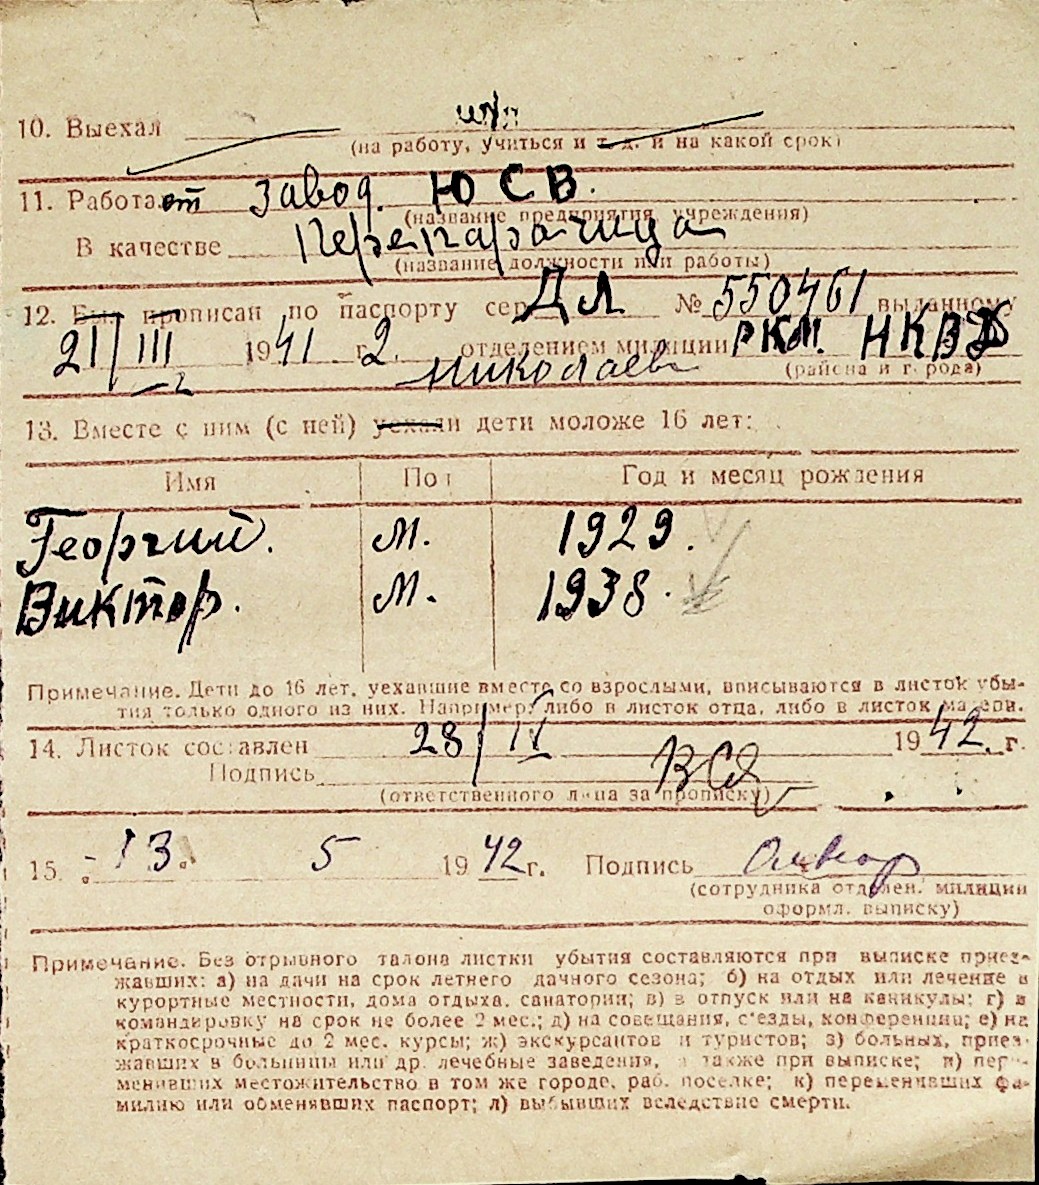 10. Выехал
(на работу, учиться и т. д. и на какой срок)
11. Работает завод. Ю С В.
(название предприятия, учреждения)
В качестве
(название должности или работы)
12. Был прописан по паспорту сер. Дл № 550461 выданному
21/III 1941 г. 2. отделением милиции РКМ. НКВД
Николаев
(района и города)
13. Вместе с ним (с ней) уехали дети моложе 16 лет:
Имя Пол Год и месяц рождения
Георгий. м. 1929.
Виктор. м. 1938.
Примечание. Дети до 16 лет, уехавшие вместе со взрослыми, вписываются в листок убы-
тия только одного из них. Например: либо в листок отца, либо в листок матери.
14. Листок составлен 28/IV 1942. г.
Подпись
(ответственного лица за прописку)
15. 13. 5 1942 г. Подпись
(сотрудника отделен. милиции
оформл. выписку)
Примечание. Без отрывного талона листки убытия составляются при выписке приез-
жавших: а) на дачи на срок летнего дачного сезона; б) на отдых или лечение в
курортные местности, дома отдыха, санатории; в) в отпуск или на каникулы; г) в
командировку на срок не более 2 мес.; д) на совещания, с'езды, конференции; е) на
краткосрочные до 2 мес. курсы; ж) экскурсантов и туристов; з) больных, приез-
жавших в больницы или др. лечебные заведения, а также при выписке; и) пере-
менивших местожительство в том же городе, раб. поселке; к) переменивших фа-
милию или обменявших паспорт; л) выбывших вследствие смерти.